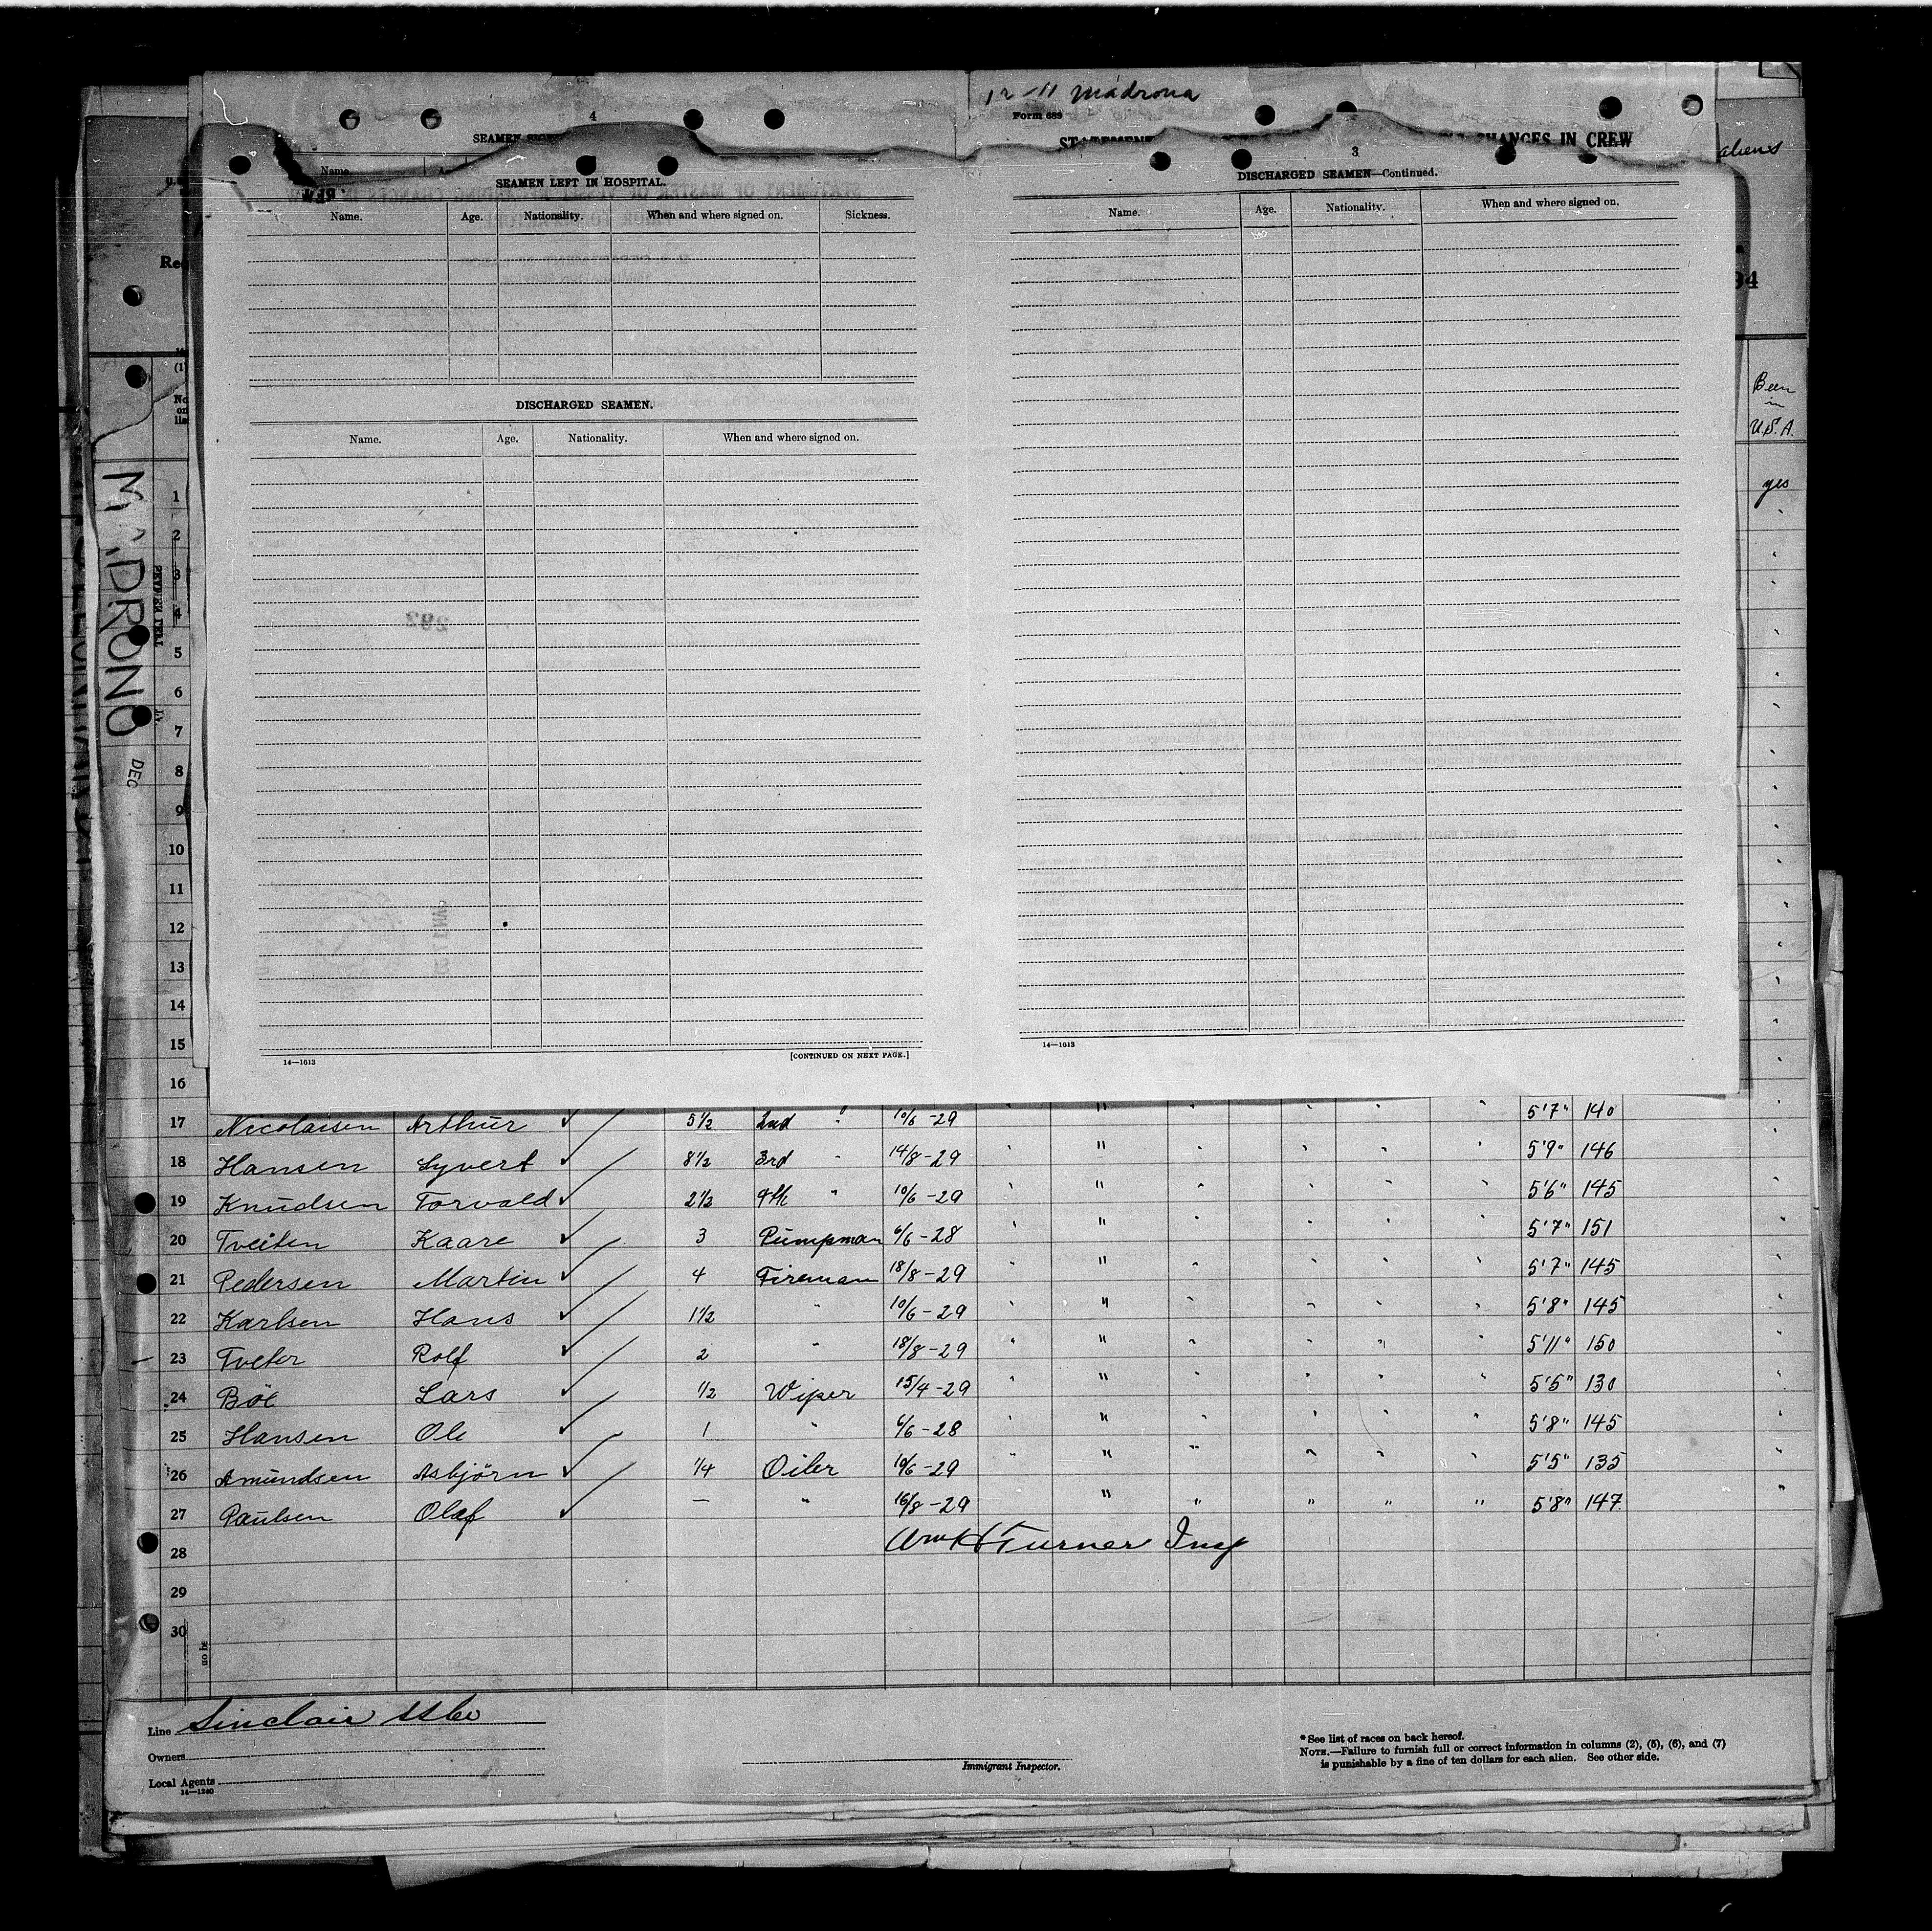 12-11 Madrona
4
Form 689
3
CHANGES IN CREW
aliens
Name.
SEAMEN LEFT IN HOSPITAL.
Name. Age. Nationality. When and where signed on. Sickness.
DISCHARGED SEAMEN.
Name. Age. Nationality. When and where signed on.
14—1613
[CONTINUED ON NEXT PAGE.]
DISCHARGED SEAMEN—Continued.
Name. Age. Nationality. When and where signed on.
14—1613
94
Been
in
U.S.A.
yes
(1)
No
on
lis
DRONO
DEC
SEAMEN LEFT
1
2
3
4
5
6
7
8
9
10
11
12
13
14
15
16
17 Nicolaisen Arthur 5½ 2nd " 10/6-29 " 5'7" 140
18 Hansen Syvert 8½ 3rd " 14/8-29 " 5'9" 146
19 Knudsen Torvald 2½ 4th " 10/6-29 " 5'6" 145
20 Tveiten Kaare 3 Pumpman 6/6-28 " 5'7" 151
21 Pedersen Martin 4 Fireman 18/8-29 " 5'7" 145
22 Karlsen Hans 1½ " 10/6-29 " 5'8" 145
23 Tveter Rolf 2 " 18/8-29 " 5'11" 150
24 Böe Lars ½ Wiper 15/4-29 " 5'5" 130
25 Hansen Ole 1 " 6/6-28 " 5'8" 145
26 Amundsen Asbjörn ¼ Oiler 10/6-29 " 5'5" 135
27 Paulsen Olaf — " 16/8-29 " " " " " 5'8" 147
28 Wm H Turner Insp
29
30
Line Sinclair SS Co
Owners
Local Agents
14—1240
Immigrant Inspector.
* See list of races on back hereof.
NOTE.—Failure to furnish full or correct information in columns (2), (5), (6), and (7)
is punishable by a fine of ten dollars for each alien. See other side.